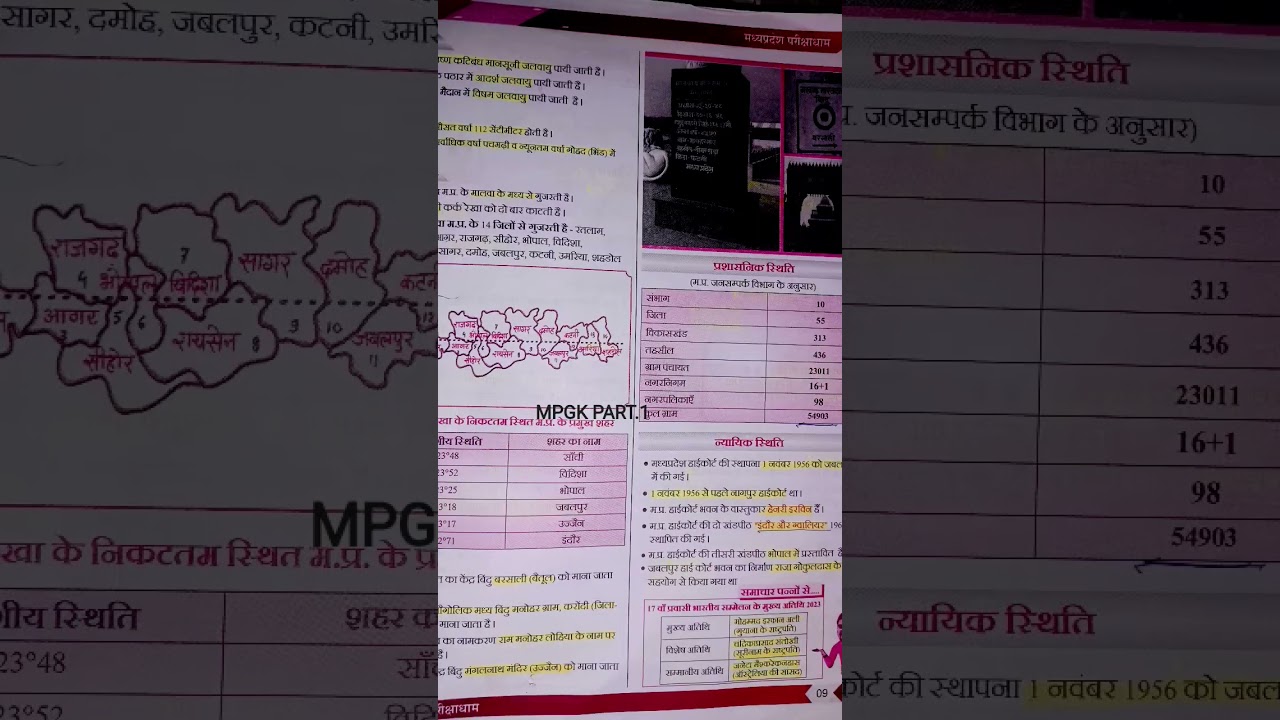 मध्यप्रदेश परीक्षाधाम
कटिबंध मानसूनी जलवायु पायी जाती है।
पठार में आदर्श जलवायु पायी जाती है।
मैदान में विषम जलवायु पायी जाती है।
वर्षा 112 सेंटीमीटर होती है।
वर्षा पचमढ़ी व न्यूनतम वर्षा गोहद (भिंड) में
म.प्र. के मालवा के मध्य से गुजरती है।
कर्क रेखा को दो बार काटती है।
म.प्र. के 14 जिलों से गुजरती है - रतलाम,
राजगढ़, सीहोर, भोपाल, विदिशा,
सागर, दमोह, जबलपुर, कटनी, उमरिया, शहडोल
राजगढ़
4
भोपाल
7
विदिशा
सागर
दमोह
कटनी
आगर
5
6
रायसेन
8
9
10
जबलपुर
11
12
सीहोर
के निकटतम स्थित म.प्र. के प्रमुख शहर
स्थिति शहर का नाम
23°48 साँची
23°52 विदिशा
3°25 भोपाल
3°18 जबलपुर
3°17 उज्जैन
2°71 इंदौर
का केंद्र बिंदु बरसाली (बैतूल) को माना जाता
मध्य बिंदु मनोहर ग्राम, करौंदी (जिला-
माना जाता है।
का नामकरण राम मनोहर लोहिया के नाम पर
है।
बिंदु मंगलनाथ मंदिर (उज्जैन) को माना जाता
प्रशासनिक स्थिति
(म.प्र. जनसम्पर्क विभाग के अनुसार)
संभाग 10
जिला 55
विकासखंड 313
तहसील 436
ग्राम पंचायत 23011
नगरनिगम 16+1
नगरपलिकाएँ 98
कुल ग्राम 54903
MPGK PART.1
न्यायिक स्थिति
• मध्यप्रदेश हाईकोर्ट की स्थापना 1 नवंबर 1956 को जबल
में की गई।
• 1 नवंबर 1956 से पहले नागपुर हाईकोर्ट था।
• म.प्र. हाईकोर्ट भवन के वास्तुकार हेनरी इरविन हैं।
• म.प्र. हाईकोर्ट की दो खंडपीठ "इंदौर और ग्वालियर" 196
स्थापित की गई।
• म.प्र. हाईकोर्ट की तीसरी खंडपीठ भोपाल में प्रस्तावित है
• जबलपुर हाई कोर्ट भवन का निर्माण राजा गोकुलदास के
सहयोग से किया गया था
समाचार पन्नों से....
17 वाँ प्रवासी भारतीय सम्मेलन के मुख्य अतिथि 2023
मुख्य अतिथि मोहम्मद इरफान अली
(गुयाना के राष्ट्रपति)
विशेष अतिथि चंद्रिकाप्रसाद संतोखी
(सूरीनाम के राष्ट्रपति)
सम्मानीय अतिथि
(ऑस्ट्रेलिया की सांसद)
09
सागर, दमोह, जबलपुर, कटनी, उमरि
राजगढ़
4
भोपाल
7
विदिशा
सागर
दमोह
कटन
आगर
5
6
रायसेन
8
9
10
जबलपुर
11
12
सीहोर
MPG
खा के निकटतम स्थित म.प्र. के प्र
गीय स्थिति शहर क
23°48
23°52
प्रशासनिक स्थिति
प्र. जनसम्पर्क विभाग के अनुसार)
10
55
313
436
23011
16+1
98
54903
न्यायिक स्थिति
कोर्ट की स्थापना 1 नवंबर 1956 को जबल